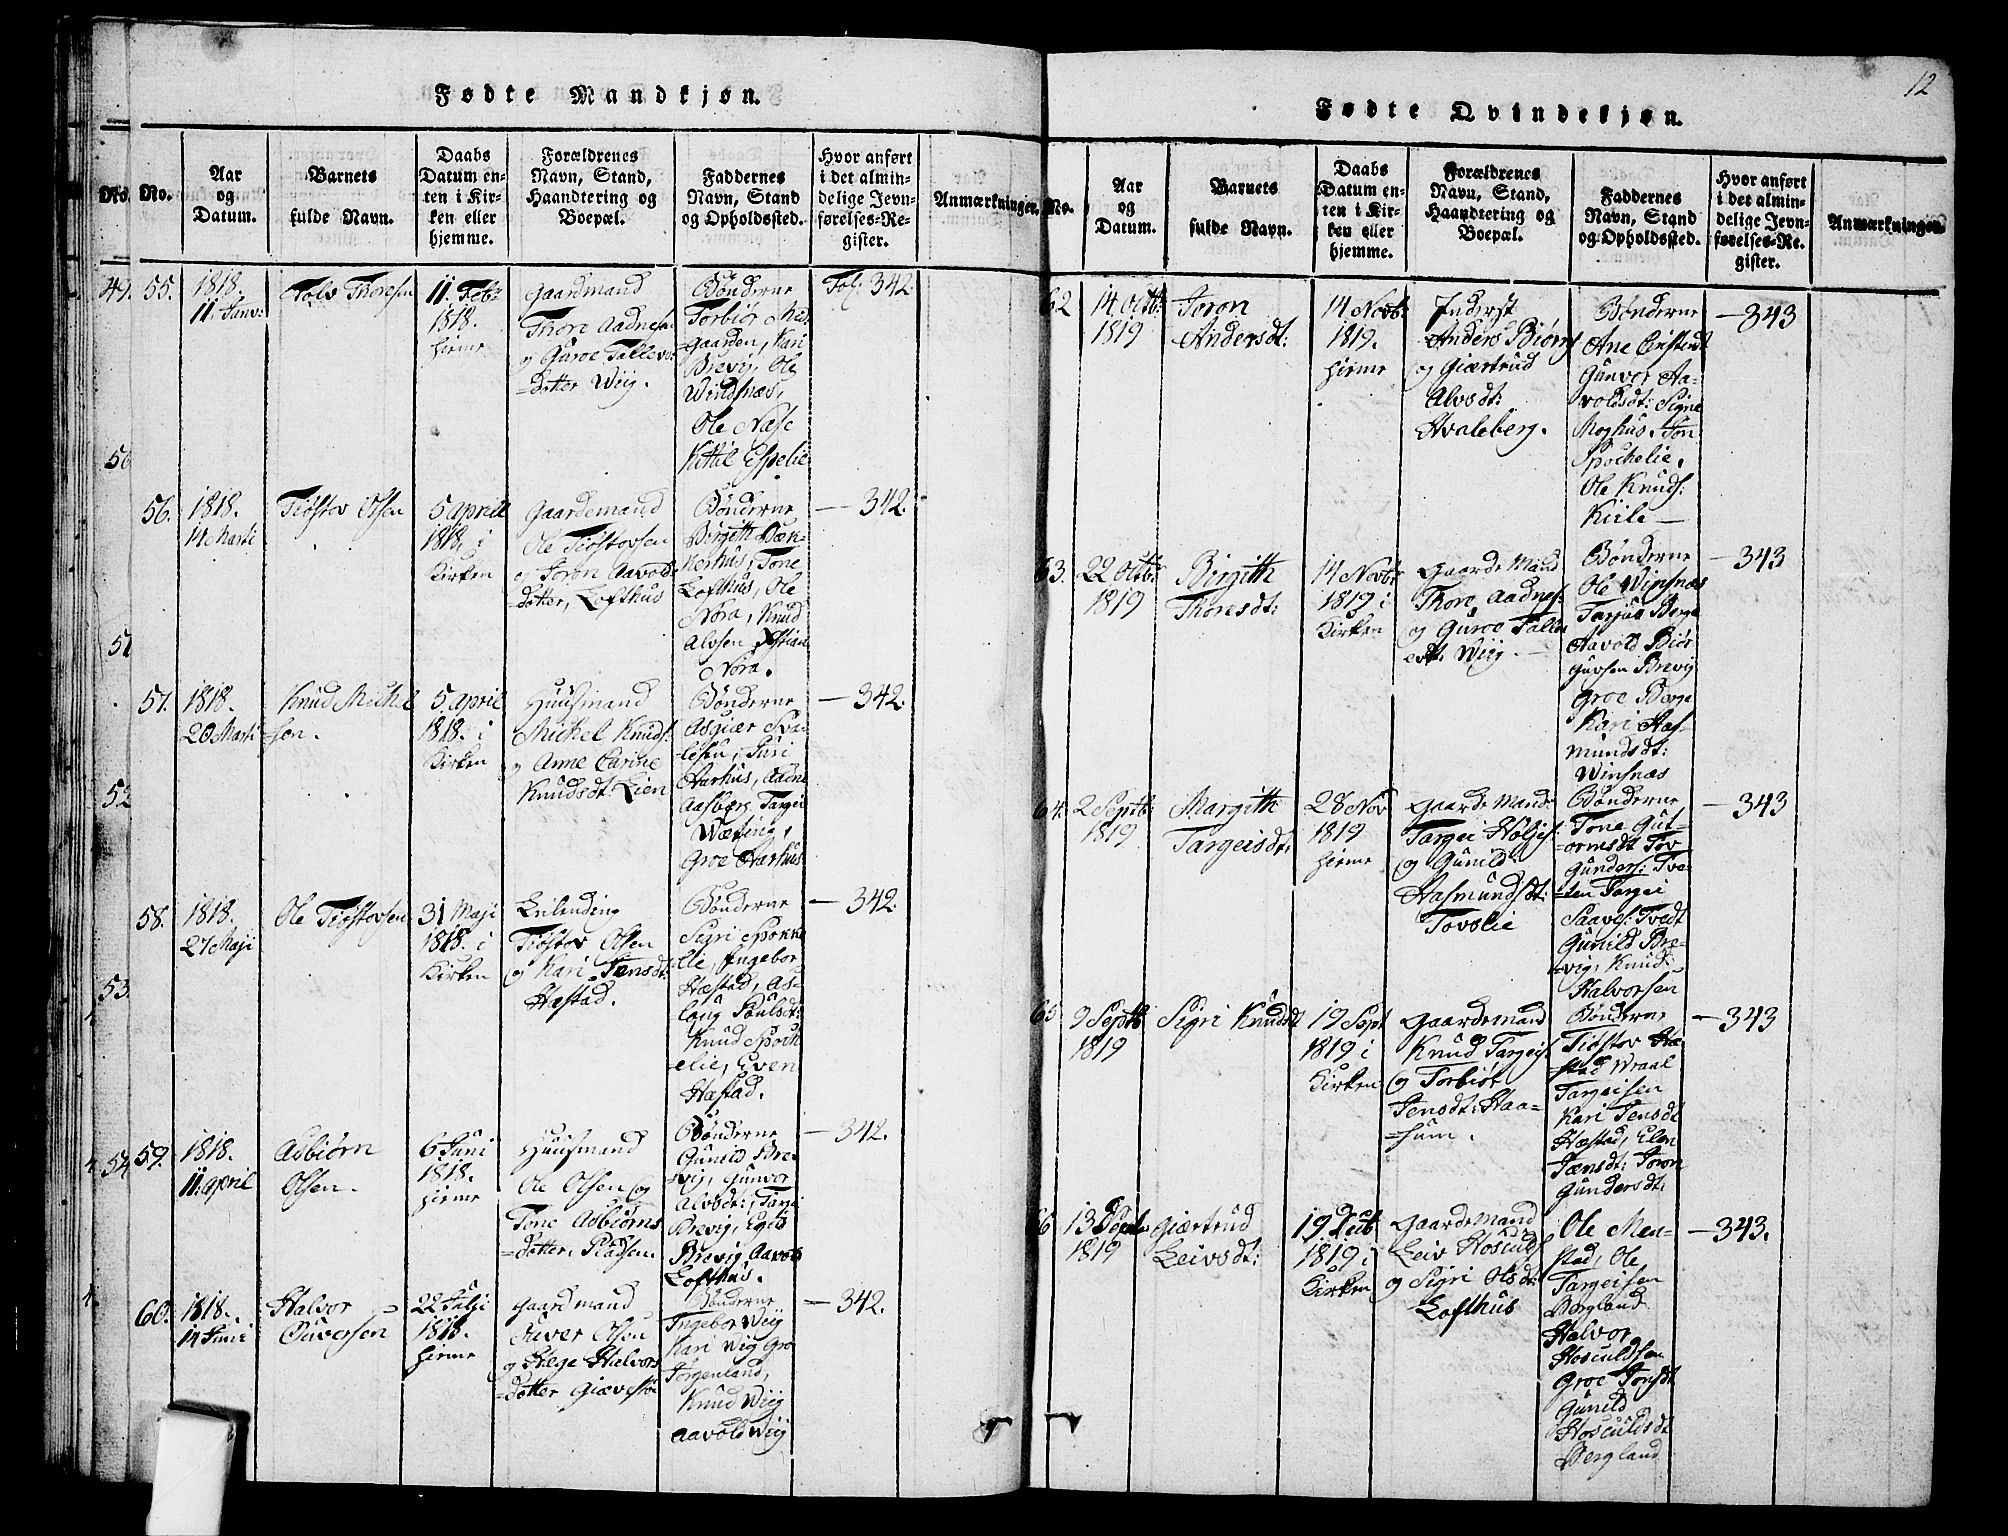 Fødte Mandkjøn.
No. No.
Aar
og
Datum.
Barnets
fulde Navn.
Daabs
Datum en-
ten i Kir-
ken eller
hjemme.
Forældrenes
Navn, Stand,
Haandtering og
Boepæl.
Faddernes
Navn, Stand
og Opholdssted.
Hvor anført
i det almin-
delige Jevn-
førelses-Re-
gister.
Anmærkninger.
49.
55.
1818.
11. Janv:
Tolv Thoresen
11. Feb:
1818.
hieme
Gaardmand
Thore Aadnesen
og Guroe Tallev-
dotter Wiig.
Bønderne
Torbiør Mid-
gaarden, Kari
Brevig, Ole
Windsnæs,
Ole Næse
Kittil Espelie
Fol: 342
56
56.
1818.
14 Marti
Tiøstov Olsen
5 April
1818. i
Kirken
Gaardemand
Ole Tiøstovsen
og Joron Aavolds
dotter, Lofthus
Bønderne
Birgith Bæk-
kerhus, Tone
Lofthus, Ole
Nora, Knud
Alvsen
Nora.
— 342.
57
57.
1818.
20 Marti
Knud Michel
-sen.
5. April
1818. i
Kirken
Huusmand
Michel Knuds:
og Anne Carine
Knudsdt: Lien
Bønderne
Asgiær Sva-
lesen, Juri
Aarhus, Aadne
Aasberg, Targei
Wæting,
Groe Aarhus
— 342.
52
58.
1818.
27 Maji
Ole Tiøstovsen
31 Maji
1818. i
Kirken
Leilending
Tiøstov Olsen
og Kari Jensdt:
Hæstad.
Bønderne
Sigri Spokke
lie, Ingebor
Hæstad, As-
loug Poulsdt:
Knud Spock
elie, Even
Hæstad.
— 342.
53.
54
59.
1818.
11. April
Asbiørn
Olsen.
6 Juni
1818.
hieme
Huusmand
Ole Olsen og
Tone Asbiørns
dotter, Pladsen
Bønderne
Gunild Bre-
vig, Gunvor
Alvsdt:, Tarje
Brevig, Egld
Brevig, Aavold
Lofthus.
— 342.
60.
1818.
14 Juni
Halvor
Ouversen
22 Julji
1818.
hieme
Gaardmand
Ouver Olsen
og Hæge Halvors
dotter Giævestøe
Bønderne
Ingebor Wiig
Kari Wiig Gro
Jørgenland,
Knud Wiig
Aavold Wiig
— 342.
12
Fødte Qvindekjøn.
No.
Aar
og
Datum.
Barnets
fulde Navn.
Daabs
Datum en-
ten i Kir-
ken eller
hjemme.
Forældrenes
Navn, Stand,
Haandtering og
Boepæl.
Faddernes
Navn, Stand
og Opholdssted.
Hvor anført
i det almin-
delige Jevn-
førelses-Re-
gister.
Anmærkninger.
62
14 Octb:
1819
Joron
Andersdt:
14 Novb:
1819.
hieme
Inderst
Anders Biørns
og Giærtrud
Alvsdt:
Hvaleberg.
Bønderne
Ane Cirstindt
Gunvor Aa-
voldsdt: Signe
Moghus. Jon
Spockelie,
Ole Knuds:
Kiile —
— 343
63.
22 Octb:
1819
Birgith
Thoresdt:
14 Novb:
1819 i
Kirken
Gaarde Mand
Thore Aadnes:
og Guroe Talle-
vdt: Wiig. —
Bønderne
Ole Winsnæs
Tarjus Berge
Aavold Biør-
gufsen Brevig
Groe Berge
Kari Aas-
mundsdt:
Winsnæs
— 343
64.
2 Septb:
1819
Margith
Targeisdt:
28 Nov
1819
hieme
Gaarde Mand
Targei Høljes:
og Gunild
Aasmundsdt:
Tovslie
Bønderne
Tone Gut-
ormsdt Tov
Gunders: Tve-
ten Targei
Saaves: Tvedt
Gunild Bre-
vig, Knud
Halvorsen
— 343
65
9 Septb
1819
Sigri Knudsdt
19 Sept
1819 i
Kirken
Gaardemand
Knud Targeis:
og Torbiør
Jensdt: Haa-
hum.
Bønderne
Tiøstov Hæ-
stad Wraal
Targeisen
Kari Jensdt
Hæstad, Elen
Jænsdt: Joron
Gundersdt:
— 343
66
13
1819
Giærtrud
Leivsdt:
19
1819 i
Kirken
Gaardemand
Leiv Hosculds
og Sigri Olsdt:
Lofthus
Ole Men-
stad, Ole
Targeisen
Bergland
Halvor
Hosculdsen
Groe Jonsdt
Gunild
Hosculdsdt
Bergland
— 343.